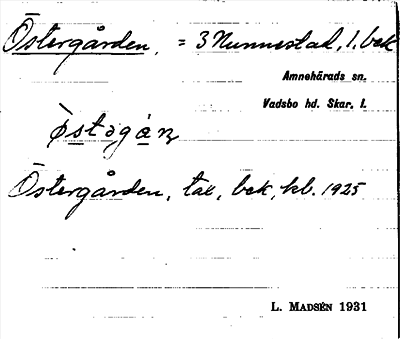 Östergården, = 3 Nunnestad, 1. bek
Amnehärads sn.
Vadsbo hd. Skar. l.
Östergården, tal, bek, kb. 1925
L. MADSÉN 1931